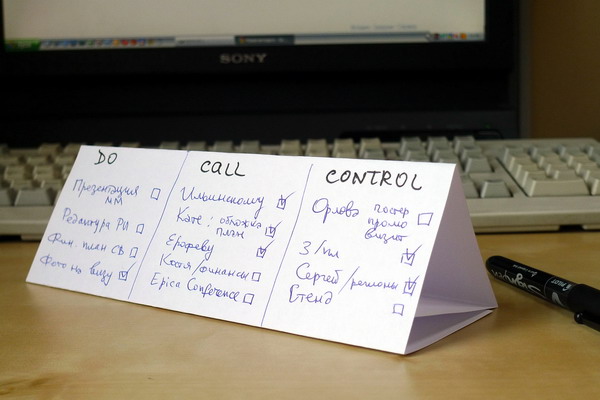 SONY
DO
Презентация
ММ
Редактура РИ
Фин. план СВ
Фото на визу
CALL
Ильинскому
Кате: обложка
план
Ерофееву
Костя/финансы
Epica Conference
CONTROL
Орлова постер
промо
визит
З/пл
Сергей/регионы
Стенд
PILOT